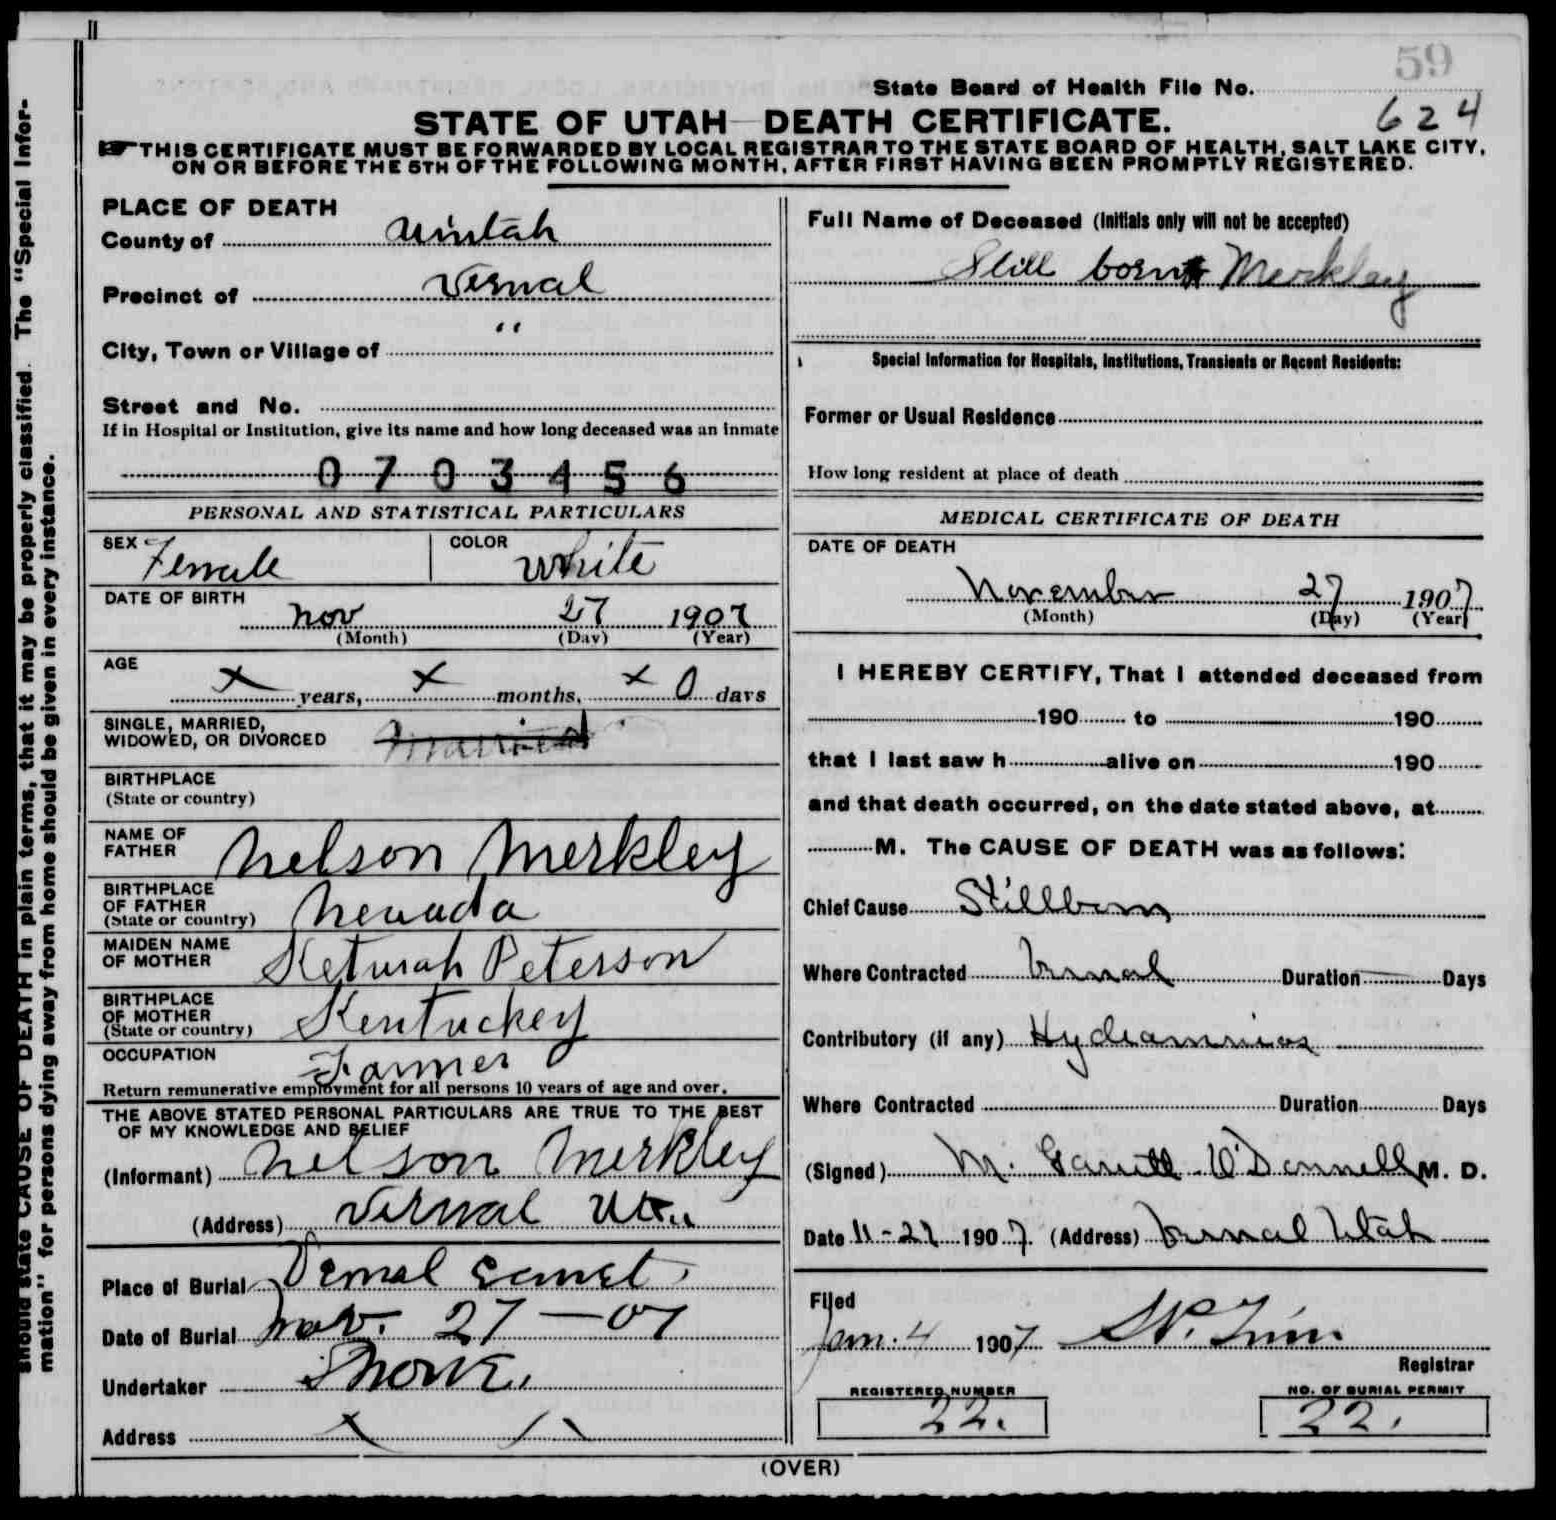 59
State Board of Health File No.
624
STATE OF UTAH—DEATH CERTIFICATE.
THIS CERTIFICATE MUST BE FORWARDED BY LOCAL REGISTRAR TO THE STATE BOARD OF HEALTH, SALT LAKE CITY,
ON OR BEFORE THE 5TH OF THE FOLLOWING MONTH, AFTER FIRST HAVING BEEN PROMPTLY REGISTERED.
should state CAUSE OF DEATH in plain terms, that it may be properly classified. The "Special Infor-
mation" for persons dying away from home should be given in every instance.
PLACE OF DEATH
County of Uintah
Precinct of Vernal
City, Town or Village of "
Street and No.
If in Hospital or Institution, give its name and how long deceased was an inmate
0703456
PERSONAL AND STATISTICAL PARTICULARS
SEX Female COLOR White
DATE OF BIRTH
Nov 27 1907
(Month) (Day) (Year)
AGE
x years, x months, x 0 days
SINGLE, MARRIED,
WIDOWED, OR DIVORCED married
BIRTHPLACE
(State or country)
NAME OF
FATHER Nelson Merkley
BIRTHPLACE
OF FATHER
(State or country) Nevada
MAIDEN NAME
OF MOTHER Keturah Peterson
BIRTHPLACE
OF MOTHER
(State or country) Kentuckey
OCCUPATION Farmer
Return remunerative employment for all persons 10 years of age and over.
THE ABOVE STATED PERSONAL PARTICULARS ARE TRUE TO THE BEST
OF MY KNOWLEDGE AND BELIEF
(Informant) Nelson Merkley
(Address) Vernal
Place of Burial Vernal
Date of Burial Nov. 27—07
Undertaker
Address x
Full Name of Deceased (Initials only will not be accepted)
Still born Merkley
Special Information for Hospitals, Institutions, Transients or Recent Residents:
Former or Usual Residence
How long resident at place of death
MEDICAL CERTIFICATE OF DEATH
DATE OF DEATH
November 27 1907
(Month) (Day) (Year)
I HEREBY CERTIFY, That I attended deceased from
190 to 190
that I last saw h alive on 190
and that death occurred, on the date stated above, at
M. The CAUSE OF DEATH was as follows:
Chief Cause Stillborn
Where Contracted Vernal Duration Days
Contributory (if any) Hydramnios
Where Contracted Duration Days
(Signed) M. Garrett O'Donnell M. D.
Date 11-27 1907. (Address) Vernal Utah
Filed
Jan. 4 1907
Registrar
REGISTERED NUMBER
22.
NO. OF BURIAL PERMIT
22.
(OVER)